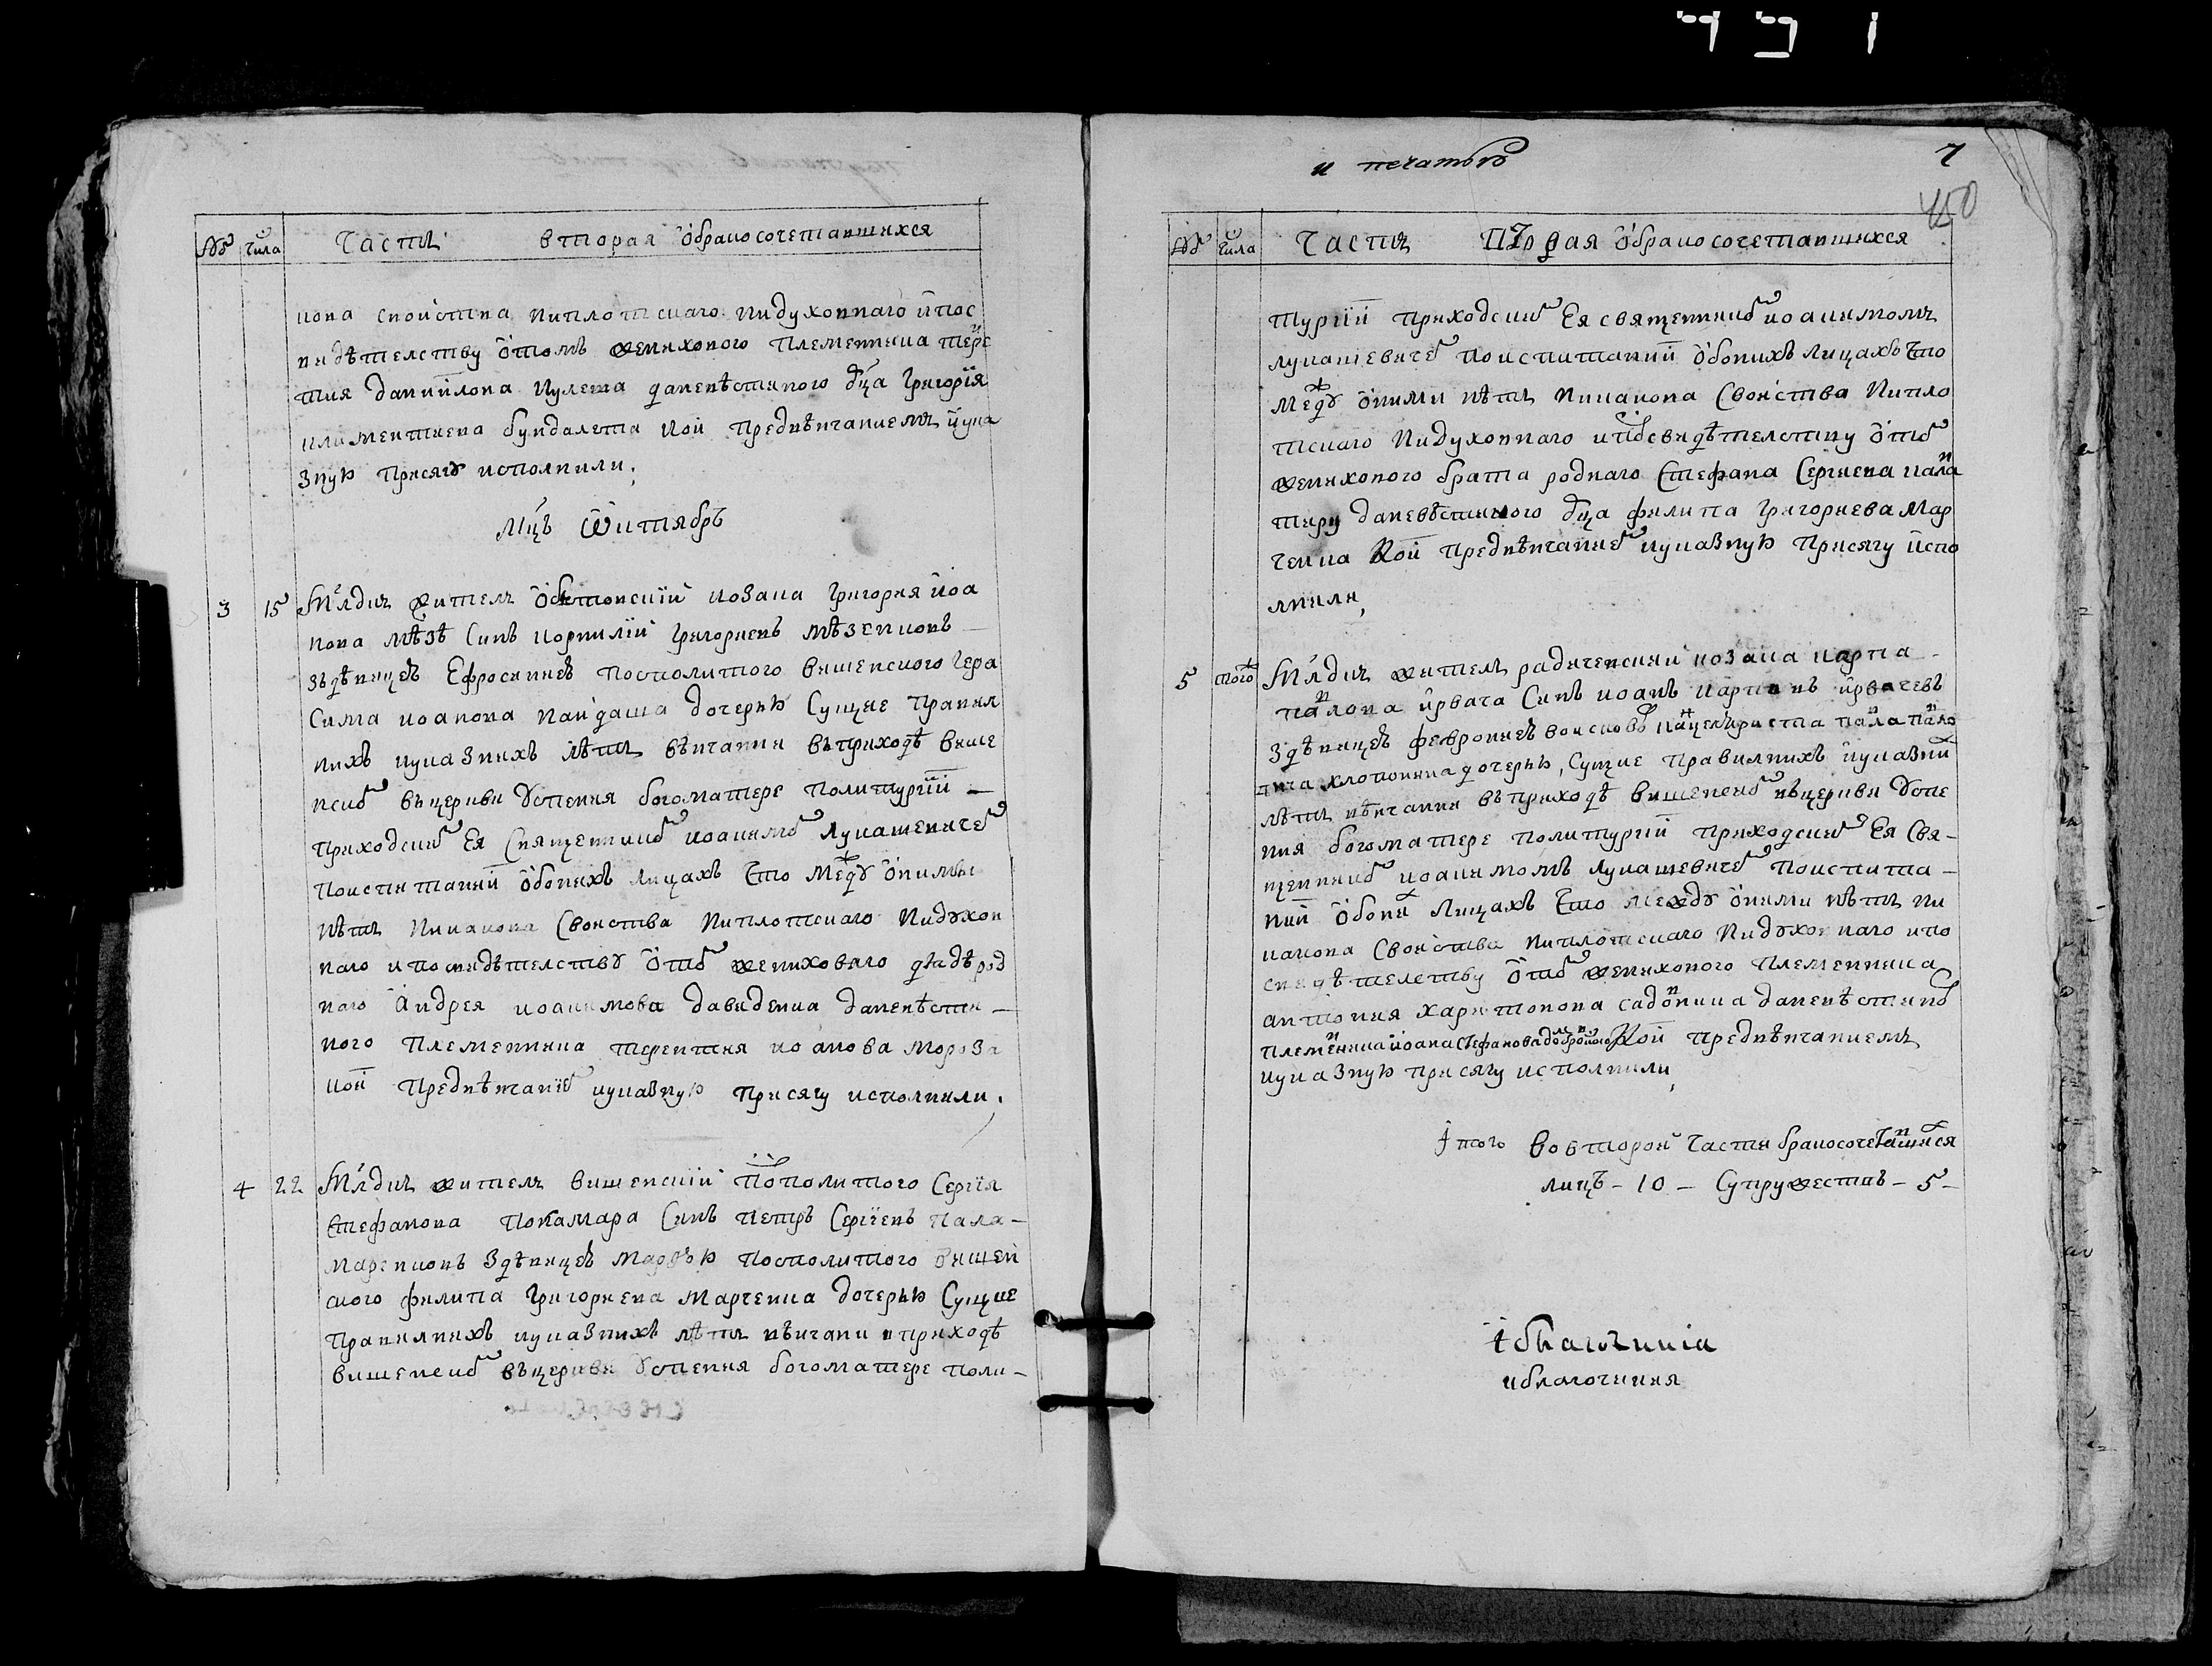 № Числа Часть вторая о бракосочетавшихся
кова свойства ни плотскаго ни духовнаго и по с
видѣтелству о томъ женихового племенника Терен
тия Данийлова Кулеша да невѣстиного отца Григорія
Климентиева Бундалета кой предвѣнчаниемъ и ука
зную присягу исполнили.
Мцъ Октябръ
3 15 Млдиҍ житель Обѣтовский козака Григория Иоа
нова Мѣзѣ Синъ Корнилий Григориевъ Мѣзенковъ
зъ дѣвицею Ефросиниею посполитого вишенского Гера
сима Иоанова Найдаша дочерью Сущие правил
нихъ иуказнихъ лѣтъ вѣнчани въ приходѣ више
нскомъ въ церкви Успения богоматере по литургий
приходскимъ Ея Священникомъ Иоакимомъ Лукашевичемъ
по испитаний о обоихъ лицахъ что между оними
нѣтъ никакова Свойства ни плотскаго ни духов
наго и по свидѣтелству о томъ жениховаго дядѣ род
ного Андрея Иоакимова Давиденка да невѣсти
ного племенника Терентия Иоанова Мороза
кой предвѣнчаниемъ иуказную присягу исполнили.
4 22 Млдиҍ житель вишенский посполитого Сергія
Стефанова Поламара Синъ Петръ Сергіевъ Пала-
маренковъ З дѣвицею Марфою посполитого вишен
ского Филипа Григориева Марченка дочерью Сущие
правилнихъ иуказнихъ лѣтъ вѣнчани в приходѣ
вишенскомъ въ церкви Успения богоматере по ли-
и печатью 7
450
№ Числа Часть Вторая о бракосочетавшихся
тургий приходскимъ Ея священникомъ Иоакимомъ
Лукашевичемъ по испитаний о обоихъ лицахъ что
между оними нѣтъ никакова Свойства ни пло
тскаго ни духовнаго и по свидѣтелству о томъ
женихового брата роднаго Стефана Сергиева Пала
маря да невѣстиного отца Филипа Григориева Мар
ченка Кой предвѣнчаниемъ иуказную присягу испо
лнили,
5 того Млдиҍ житель радиченский козака Карпа
Павлова Ирвача Синъ Иоанъ Карповъ Ирвачевъ
З дѣвицею Феврониею войсковомъ канцеляриста Павла Павло
вича Хлопоника дочерью, Сущие правилнихъ иуказних
лѣтъ вѣнчани въ приходѣ вишенскомъ въ церкви Успе
ния богоматере по литургий приходскимъ Ея Свя-
щенникомъ Иоакимомъ Лукашевичемъ по испита-
ний о обоихъ лицахъ что между оними нѣтъ ни
какова Свойства ни плотскаго ни духовнаго и по
свидѣтелству о томъ женихового племенника
Антония Харитонова Садовника да невѣстиного
племенника Иоана Стефанова Кой предвѣнчаниемъ
иуказную присягу исполнили,
Итого во второй Части бракосочетавшихся
лицъ - 10 - Супружествъ - 5 -
и благочиния